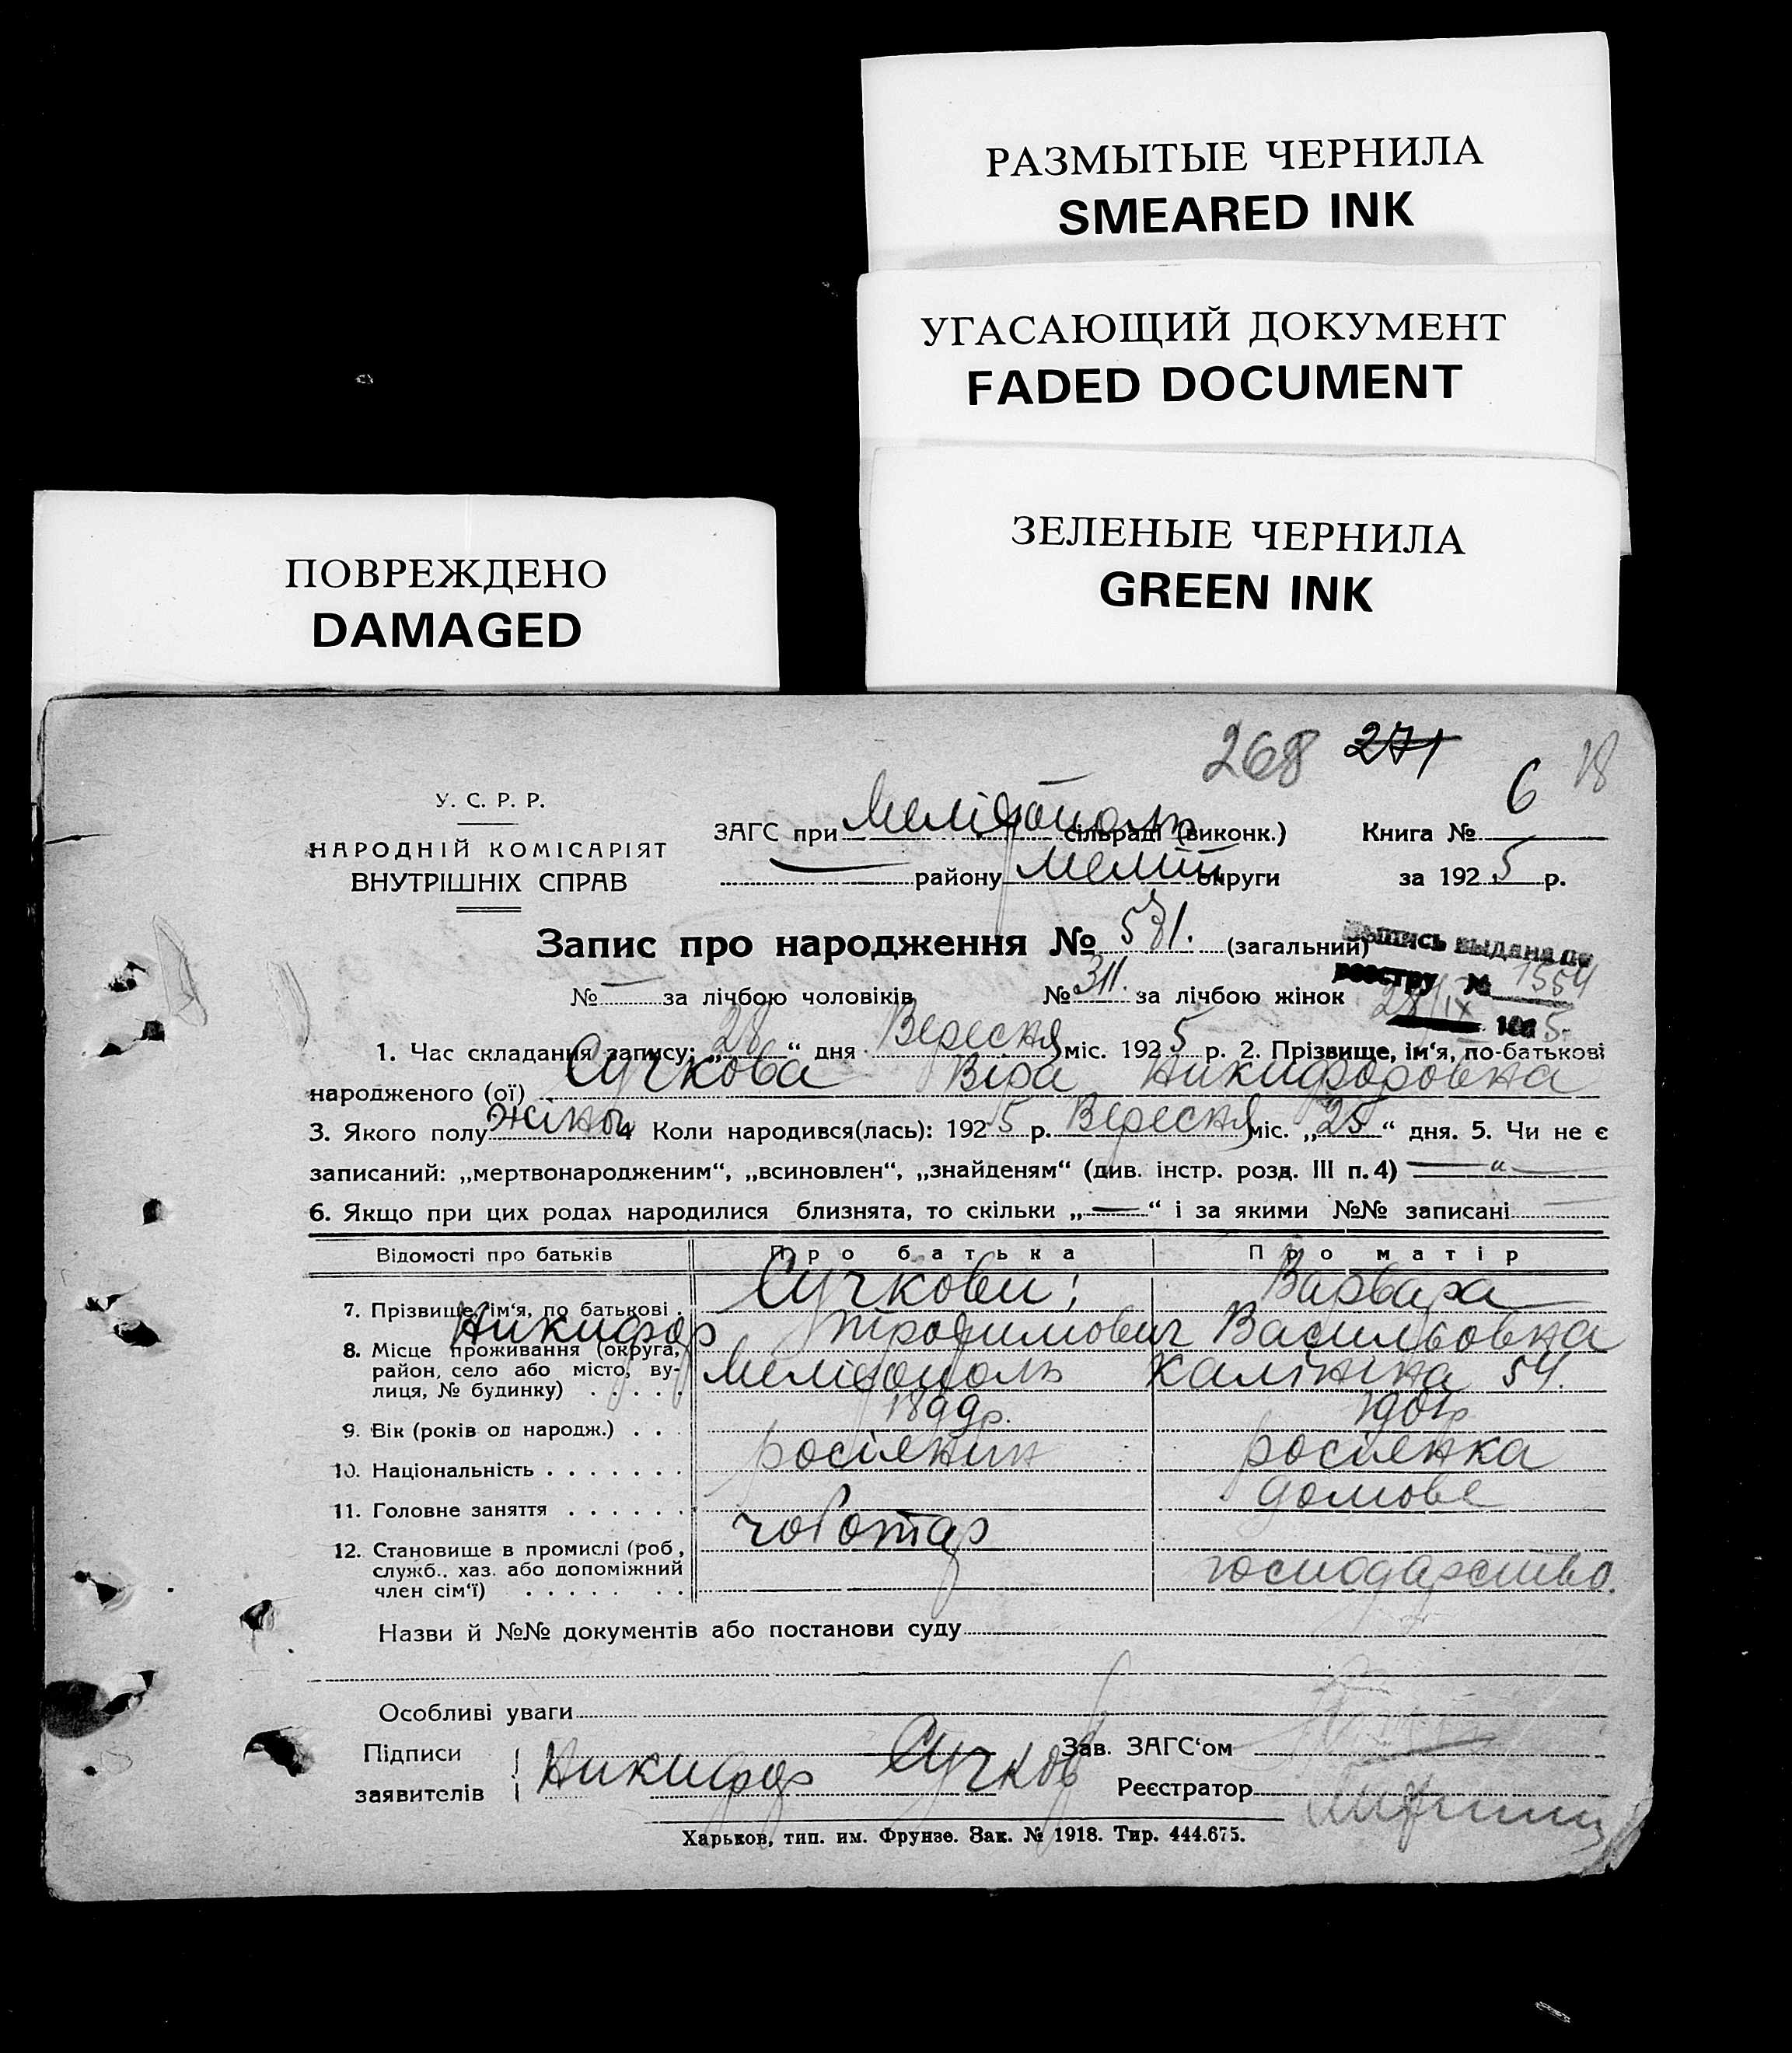 РАЗМЫТЫЕ ЧЕРНИЛА
SMEARED INK
УГАСАЮЩИЙ ДОКУМЕНТ
FADED DOCUMENT
ЗЕЛЕНЫЕ ЧЕРНИЛА
GREEN INK
ПОВРЕЖДЕНО
DAMAGED
268 271 18
У. С. Р. Р.
НАРОДНІЙ КОМІСАРІЯТ
ВНУТРІШНІХ СПРАВ
ЗАГС при Мелітополь сільраді (виконк.) Книга № 6
— району Меліт округи за 1925 р.
Запис про народження № 581. (загальний)
Выпись выдана по
реестру № 1554
28/IX 1925
№ — за лічбою чоловіків №311. за лічбою жінок
1. Час складання запису: „28“ дня Вересня міс. 1925 р. 2. Прізвище, ім‘я, по-батькові
народженого (ої) Сучкова Віра Никифоровна
3. Якого полу жіноч 4 Коли народився(лась): 1925 р. Вересня міс. „25“ дня. 5. Чи не є
записаний: „мертвонародженим“, „всиновлен“, „знайденям“ (див. інстр. розд. III п. 4) — „ —
6. Якщо при цих родах народилися близнята, то скільки „—“ і за якими №№ записані —
Відомості про батьків Про батька Про матір
7. Прізвище, ім‘я, по батькові . Сучкови: Варвара
Никифор Трофимович Васильовна
8. Місце проживання (округа,
район, село або місто, ву-
лиця, № будинку) . . . . . Мелітополь Калініна 54.
9. Вік (років од народж.) . . . 1899р. 1901р
10. Національність . . . . . . . росіянин росіянка
11. Головне заняття . . . . . . чоботар домове
12. Становище в промислі (роб.,
служб., хаз. або допоміжний
член сім‘ї) . . . . . . . господарство.
Назви й №№ документів або постанови суду
Особливі уваги
Підписи
заявителів Никифор Сучков
Зав. ЗАГС‘ом
Реєстратор
Харьков, тип. им. Фрунзе. Зак. № 1918. Тир. 444.675.